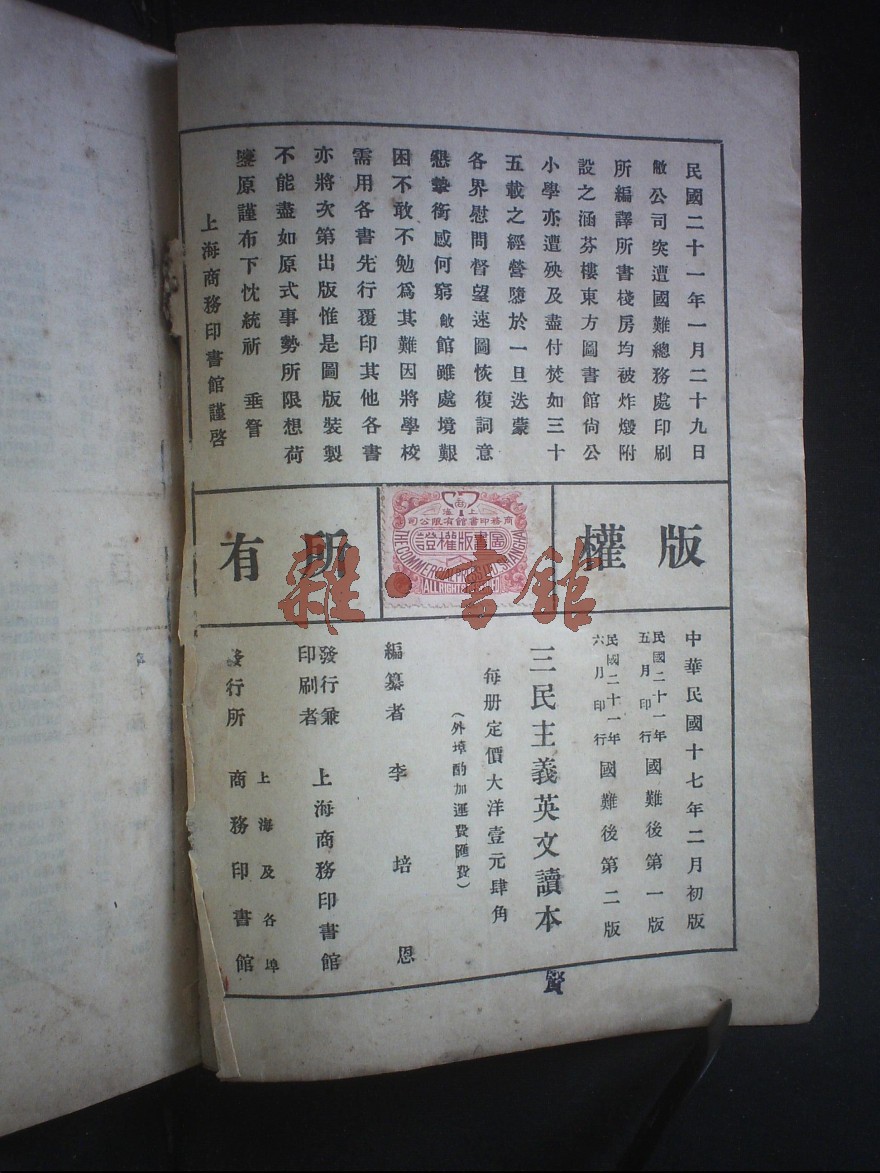 民國二十一年一月二十九日
敝公司突遭國難總務處印刷
所編譯所書棧房均被炸燬附
設之涵芬樓東方圖書館尙公
小學亦遭殃及盡付焚如三十
五載之經營隳於一旦迭蒙
各界慰問督望速圖恢復詞意
懇摯銜感何窮敝館雖處境艱
困不敢不勉爲其難因將學校
需用各書先行覆印其他各書
亦將次第出版惟是圖版裝製
不能盡如原式事勢所限想荷
鑒原謹布下忱統祈 垂詧
上海商務印書館謹啓
版權
所有
上海
商務印書館有限公司
圖書版權證
THE COMMERCIAL PRESS LTD SHANGHAI
ALL RIGHTS RESERVED
雜·書館
中華民國十七年二月初版
民國二十一年五月印行 國難後第一版
民國二十一年六月印行 國難後第二版
三民主義英文讀本
每册定價大洋壹元肆角
（外埠酌加運費匯費）
編纂者 李培恩
發行兼印刷者 上海商務印書館
發行所 上海及各埠 商務印書館